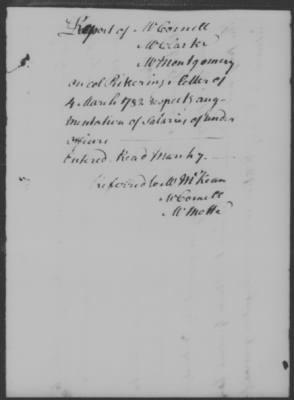 Report of Mr Cornell
Mr Clarke
Mr Montgomery
on col Pickering's letter of
4 March 1782 respectg aug-
mentation of Salaries of under
officers
Entered Read March 7.
referred to Mr McKean
Mr Cornell
Mr Motte